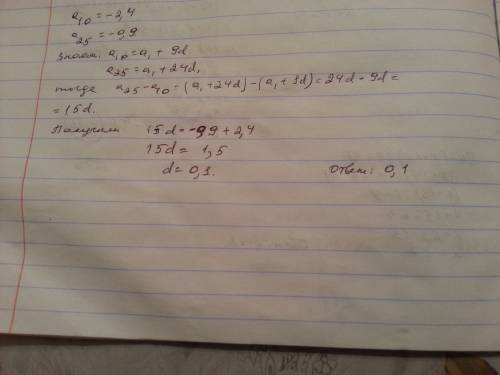 a₁₀ = -2,4
a₂₅ = -0,9
Знаем: a₁₀ = a₁ + 9d
a₂₅ = a₁ + 24d,
тогда a₂₅ - a₁₀ = (a₁ + 24d) - (a₁ + 9d) = 24d - 9d =
= 15d.
Получили 15d = -0,9 + 2,4
15d = 1,5
d = 0,1. Ответ: 0,1